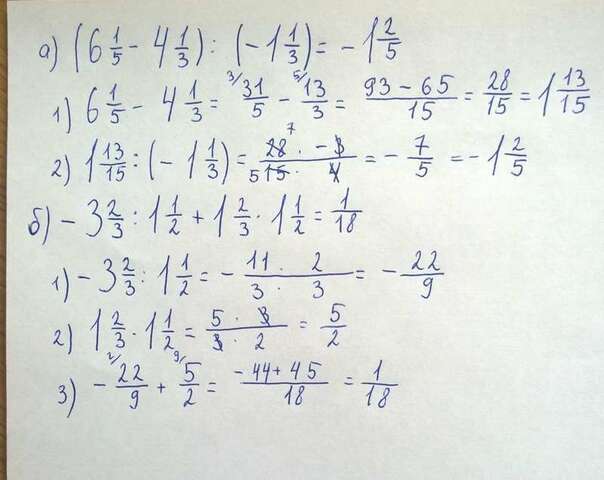 а) (6 1/5 - 4 1/3) : (-1 1/3) = -1 2/5
1) 6 1/5 - 4 1/3 = 3/ 31/5 - 5/ 13/3 = (93 - 65)/15 = 28/15 = 1 13/15
2) 1 13/15 : (-1 1/3) = (28 7 · -3)/(5 15 · 4) = -7/5 = -1 2/5
б) -3 2/3 : 1 1/2 + 1 2/3 · 1 1/2 = 1/18
1) -3 2/3 : 1 1/2 = -(11 · 2)/(3 · 3) = -22/9
2) 1 2/3 · 1 1/2 = (5 · 3)/(3 · 2) = 5/2
3) -2/ 22/9 + 9/ 5/2 = (-44 + 45)/18 = 1/18